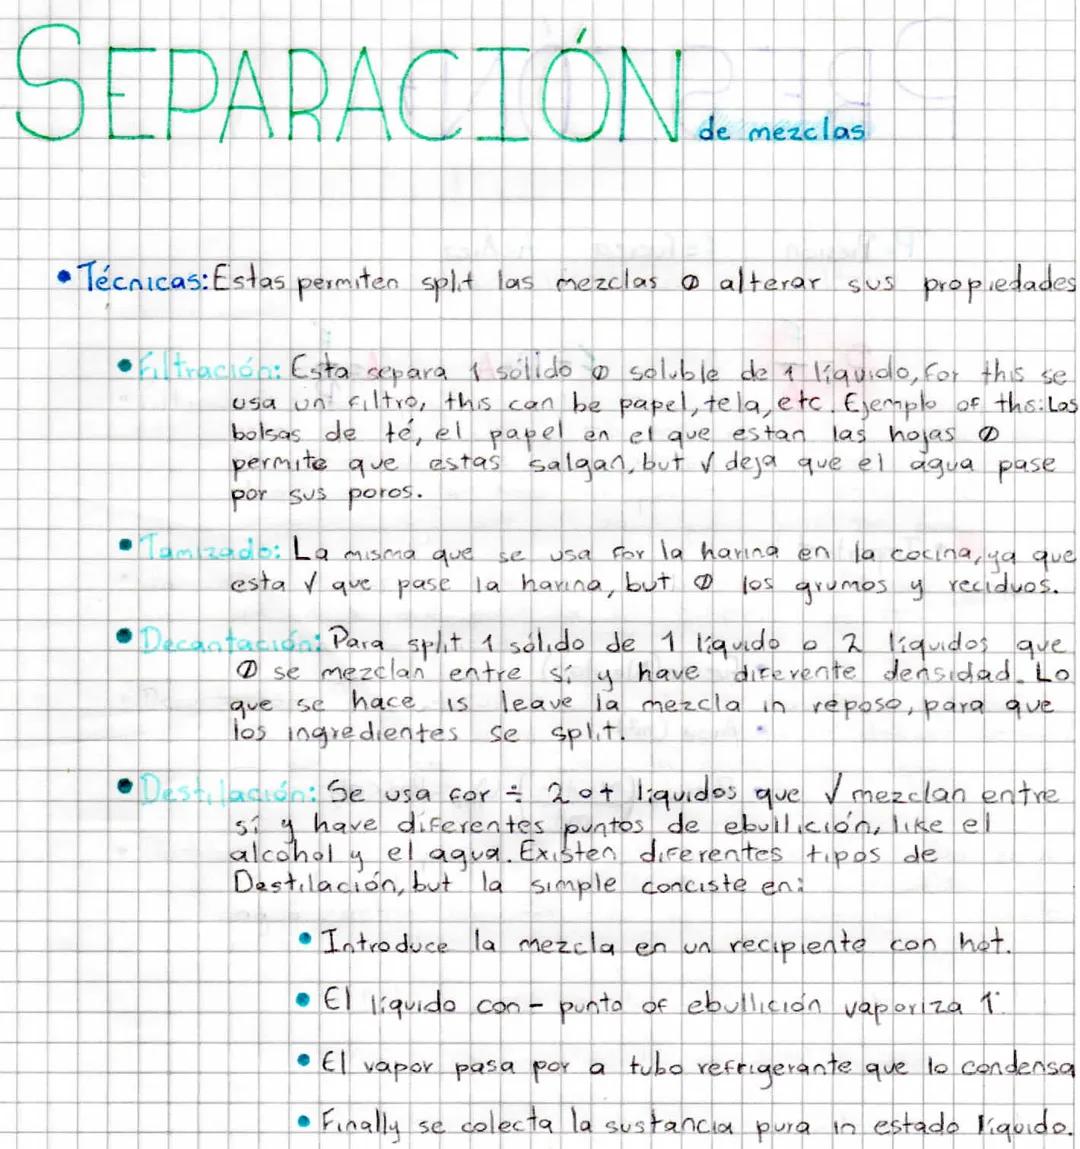 SEPARACIÓN de mezclas
• Técnicas: Estas permiten split las mezclas Ø alterar sus propiedades
• Filtración: Esta separa 1 sólido Ø soluble de 1 líquido, for this se
usa un filtro, this can be papel, tela, etc. Ejemplo of this: Las
bolsas de té, el papel en el que estan las hojas Ø
permite que estas salgan, but √ deja que el agua pase
por sus poros.
• Tamizado: La misma que se usa for la harina en la cocina, ya que
esta √ que pase la harina, but Ø los grumos y reciduos.
• Decantación: Para split 1 sólido de 1 líquido o 2 líquidos que
Ø se mezclan entre sí y have diferente densidad. Lo
que se hace is leave la mezcla in reposo, para que
los ingredientes se split.
• Destilación: Se usa for ÷ 2 o + líquidos que √ mezclan entre
sí y have diferentes puntos de ebullición, like el
alcohol y el agua. Existen diferentes tipos de
Destilación, but la simple conciste en:
• Introduce la mezcla en un recipiente con hot.
• El líquido con - punto of ebullición vaporiza 1°.
• El vapor pasa por a tubo refrigerante que lo condensa
• Finally se colecta la sustancia pura in estado líquido.